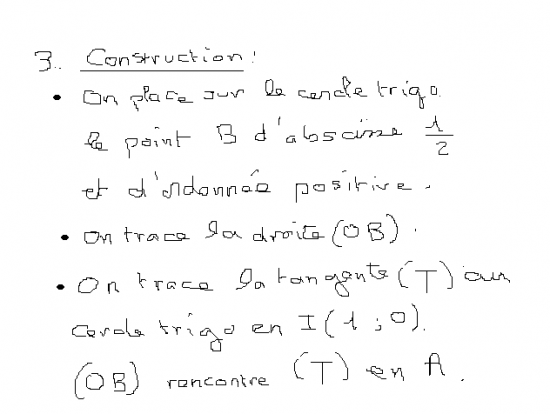 3. Construction :
• On place sur le cercle trigo
le point B d'abscisse 1/2
et d'ordonnée positive.
• On trace la droite (OB).
• On trace la tangente (T) au
cercle trigo en I(1;0).
(OB) rencontre (T) en A.